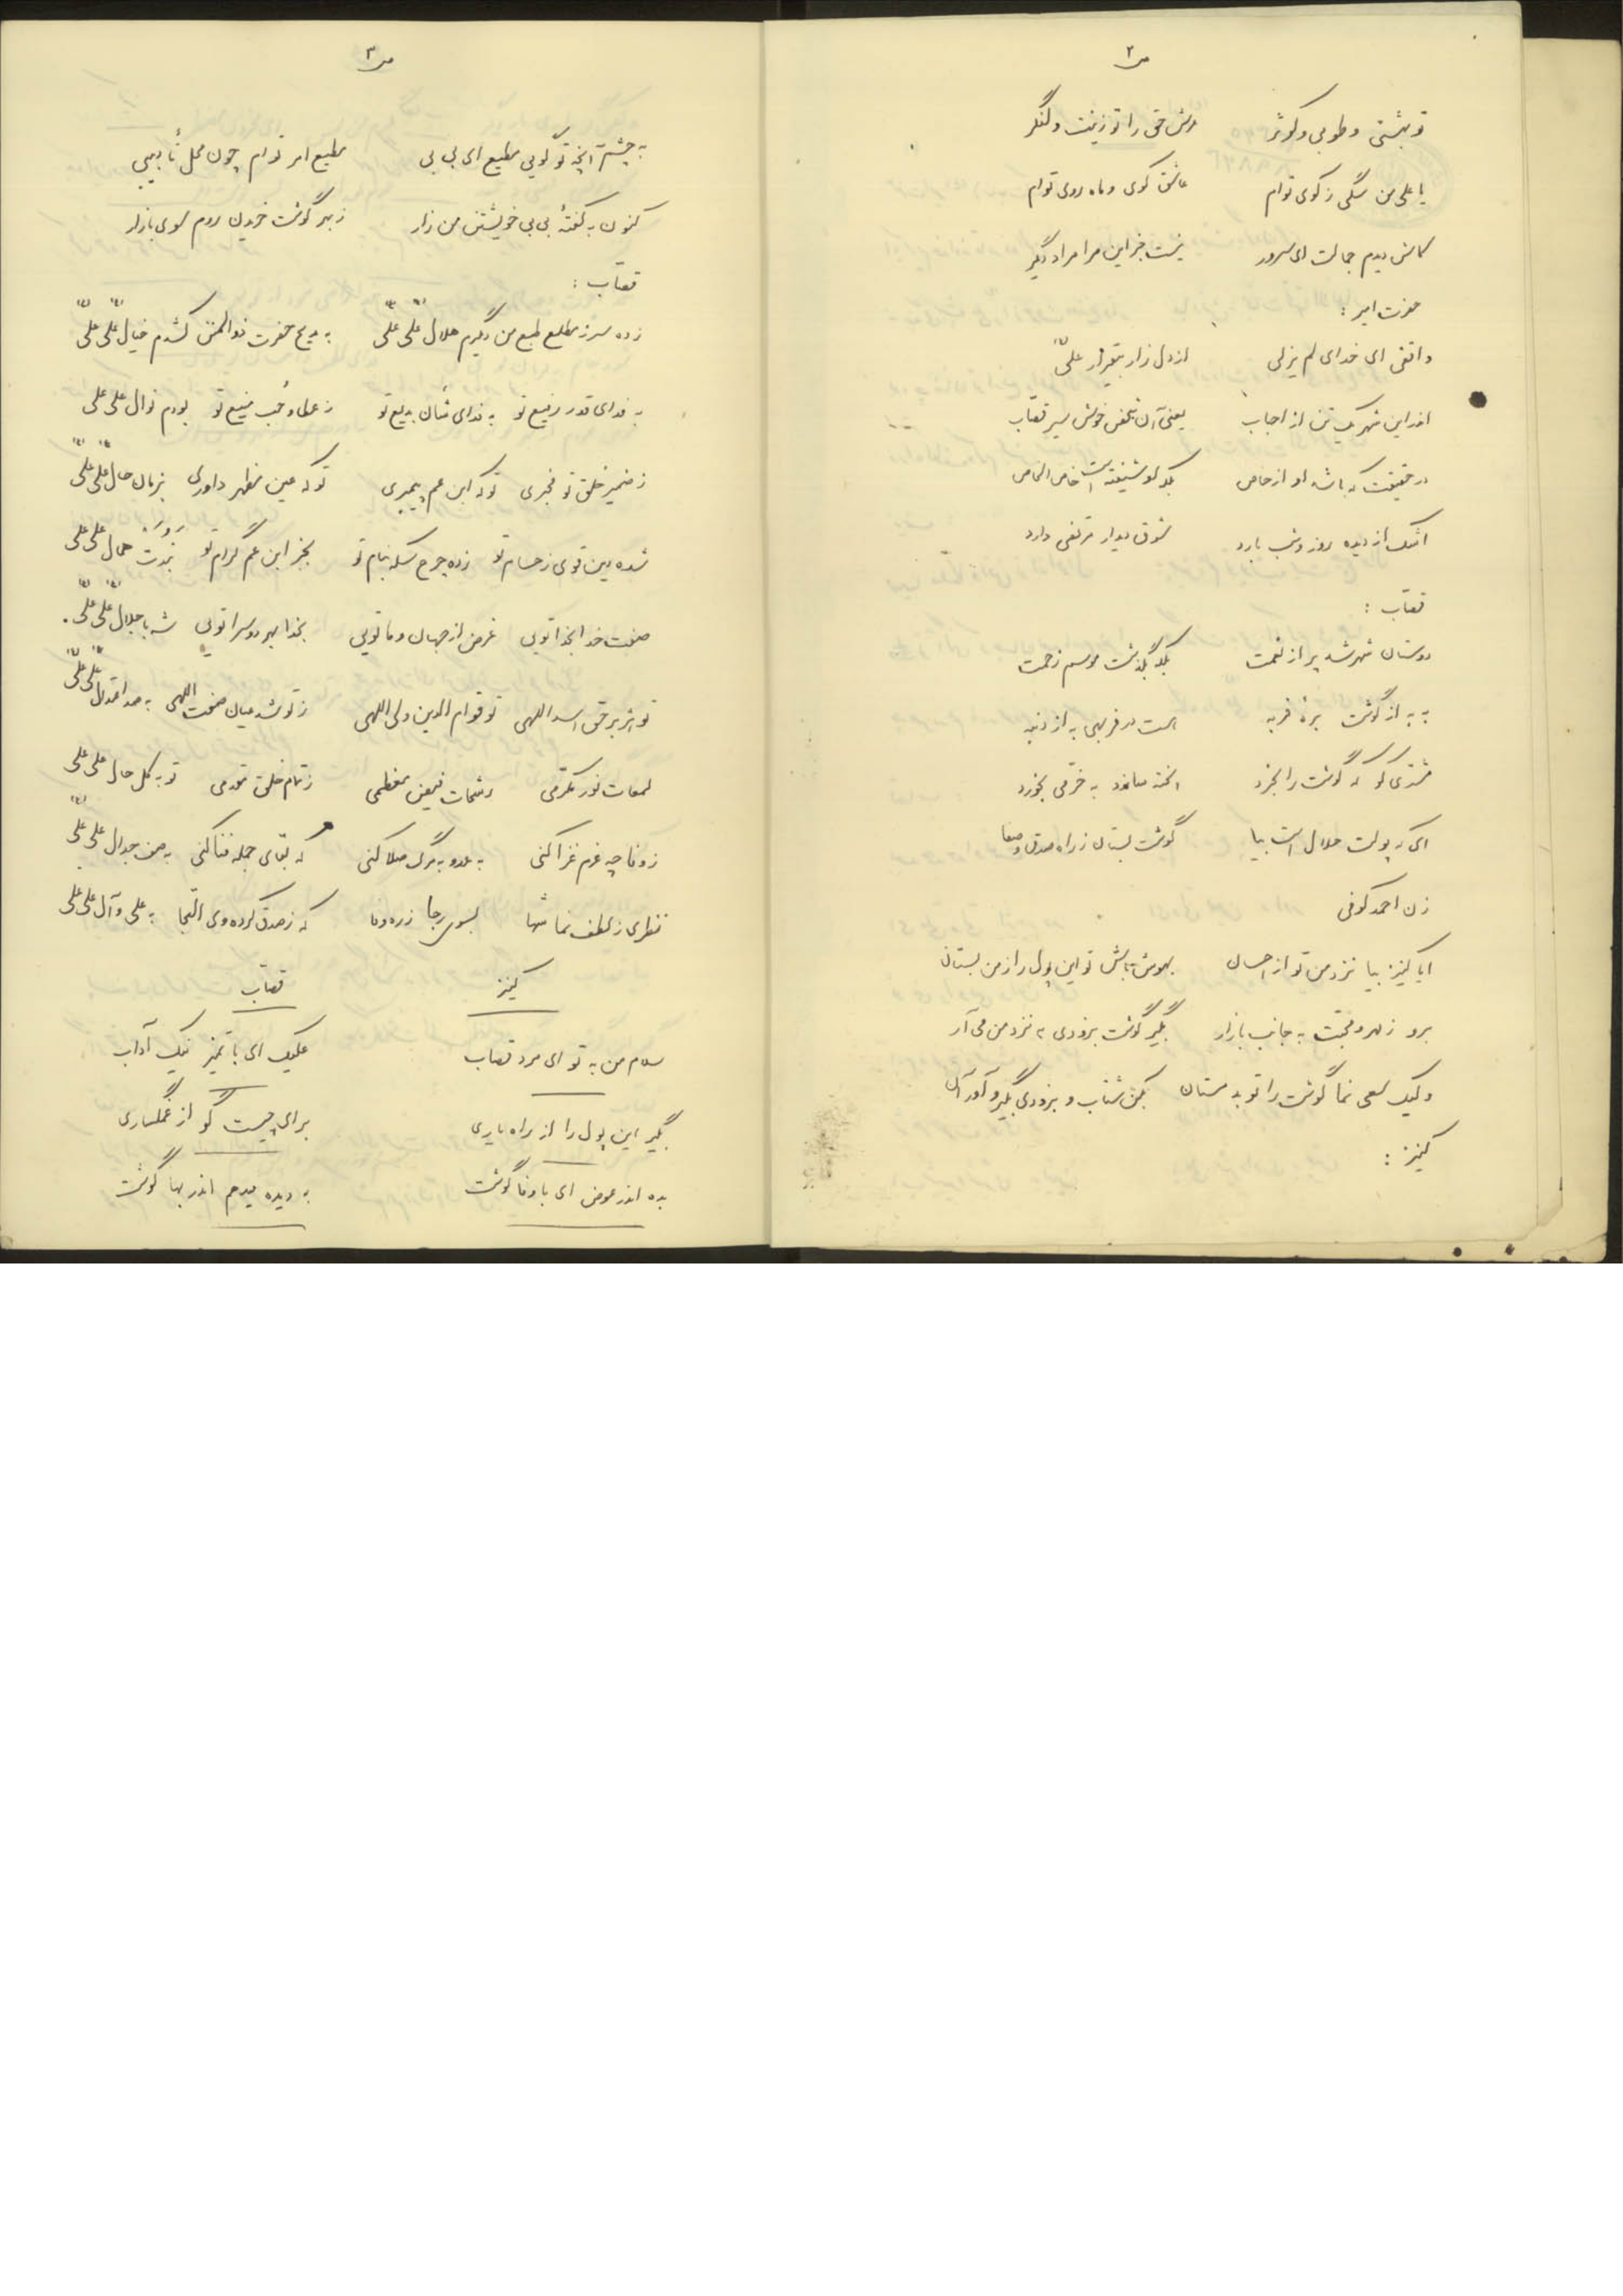 ص ۲
تو بهشتی و طوبی و کوثر    عرش حق را تو زینت و لنگر
یا علی من سگی ز کوی توام    عاشق کوی و ماه روی توام
کاش دیدم جمالت ای سرور    نیست جز این مرا مراد دگر
حضرت امیر :
واقفی ای خدای لم یزلی    از دل زار بیقرار علی
اندر این شهر یک تن از احباب    یعنی آن شخص خوش سیر قصاب
در حقیقت که باشد او از خاص    بلکه او شیفته است خاص الخاص
اشک از دیده روز و شب بارد    شوق دیدار مرتضی دارد
قصاب :
دوستان شهر شد پر از نعمت    بگذشت موسم زحمت
به به از گوشت برهٔ فربه    هست در فربهی به از دنبه
مشتری کو که گوشت را بخرد    به خرمی بخورد
ای که پولت حلال است بیا    گوشت بستان ز راه صدق و صفا
زن احمد کوفی
ایا کنیز بیا نزد من تو از احسان    بهوش باش تو این پول را ز من بستان
برو ز مهر و محبت به جانب بازار    بگیر گوشت بزودی به نزد من می آر
ولیک سعی نما گوشت را تو بد مستان    بکن شتاب و بزودی بگیر و آور آن
کنیز :
ص ۳
به چشم آنچه تو گویی مطیع ای بی بی    مطیع امر توام چون محل تأدیبی
کنون به گفتهٔ بی بی خویشتن من زار    ز بهر گوشت خریدن روم سوی بازار
قصاب :
زده سر ز مطلع طبع من دگرم هلال علی علی    به مدیح حضرت ذوالمنن کشدم خیال علی علی
به فدای قدر رفیع تو    به فدای شأن بدیع تو    ز عطا و حب منیع تو    بودم نوال علی علی
ز ضمیر خلق تو مخبری    تو که ابن عم پیمبری    تو که عین مظهر داوری    بزمان حال علی علی
شده دین قوی ز حسام تو    زده چرخ سکه بنام تو    بجز ابن عم گرام تو    همال علی علی
صفت خدا بخدا تویی    غرض از جهان و ما تویی    بخدا بهر دو سرا تویی    شه با جلال علی علی
تو هژبر حق اسد اللهی    تو قوام الدین ولی اللهی    ز تو شد عیان صفت اللهی    به صد اعتدال علی علی
لمعات نور مکرمی    رشحات فیض معظمی    ز تمام خلق مقدمی    تو به کل حال علی علی
ز وفا چه عزم غزا کنی    به عدو به مرگ صلا کنی    که بقای جمله فنا کنی    به صف جدال علی علی
نظری ز لطف نما شها    بسوی رجا ز ره وفا    که ز صدق کرده وی التجا    به علی و آل علی علی
کنیز    قصاب
سلام من به تو ای مرد قصاب    علیک ای با تمیز نیک آداب
بگیر این پول را از راه یاری    برای چیست گو از غمگساری
بده اندر عوض ای با وفا گوشت    به دیده میدهم اندر بها گوشت